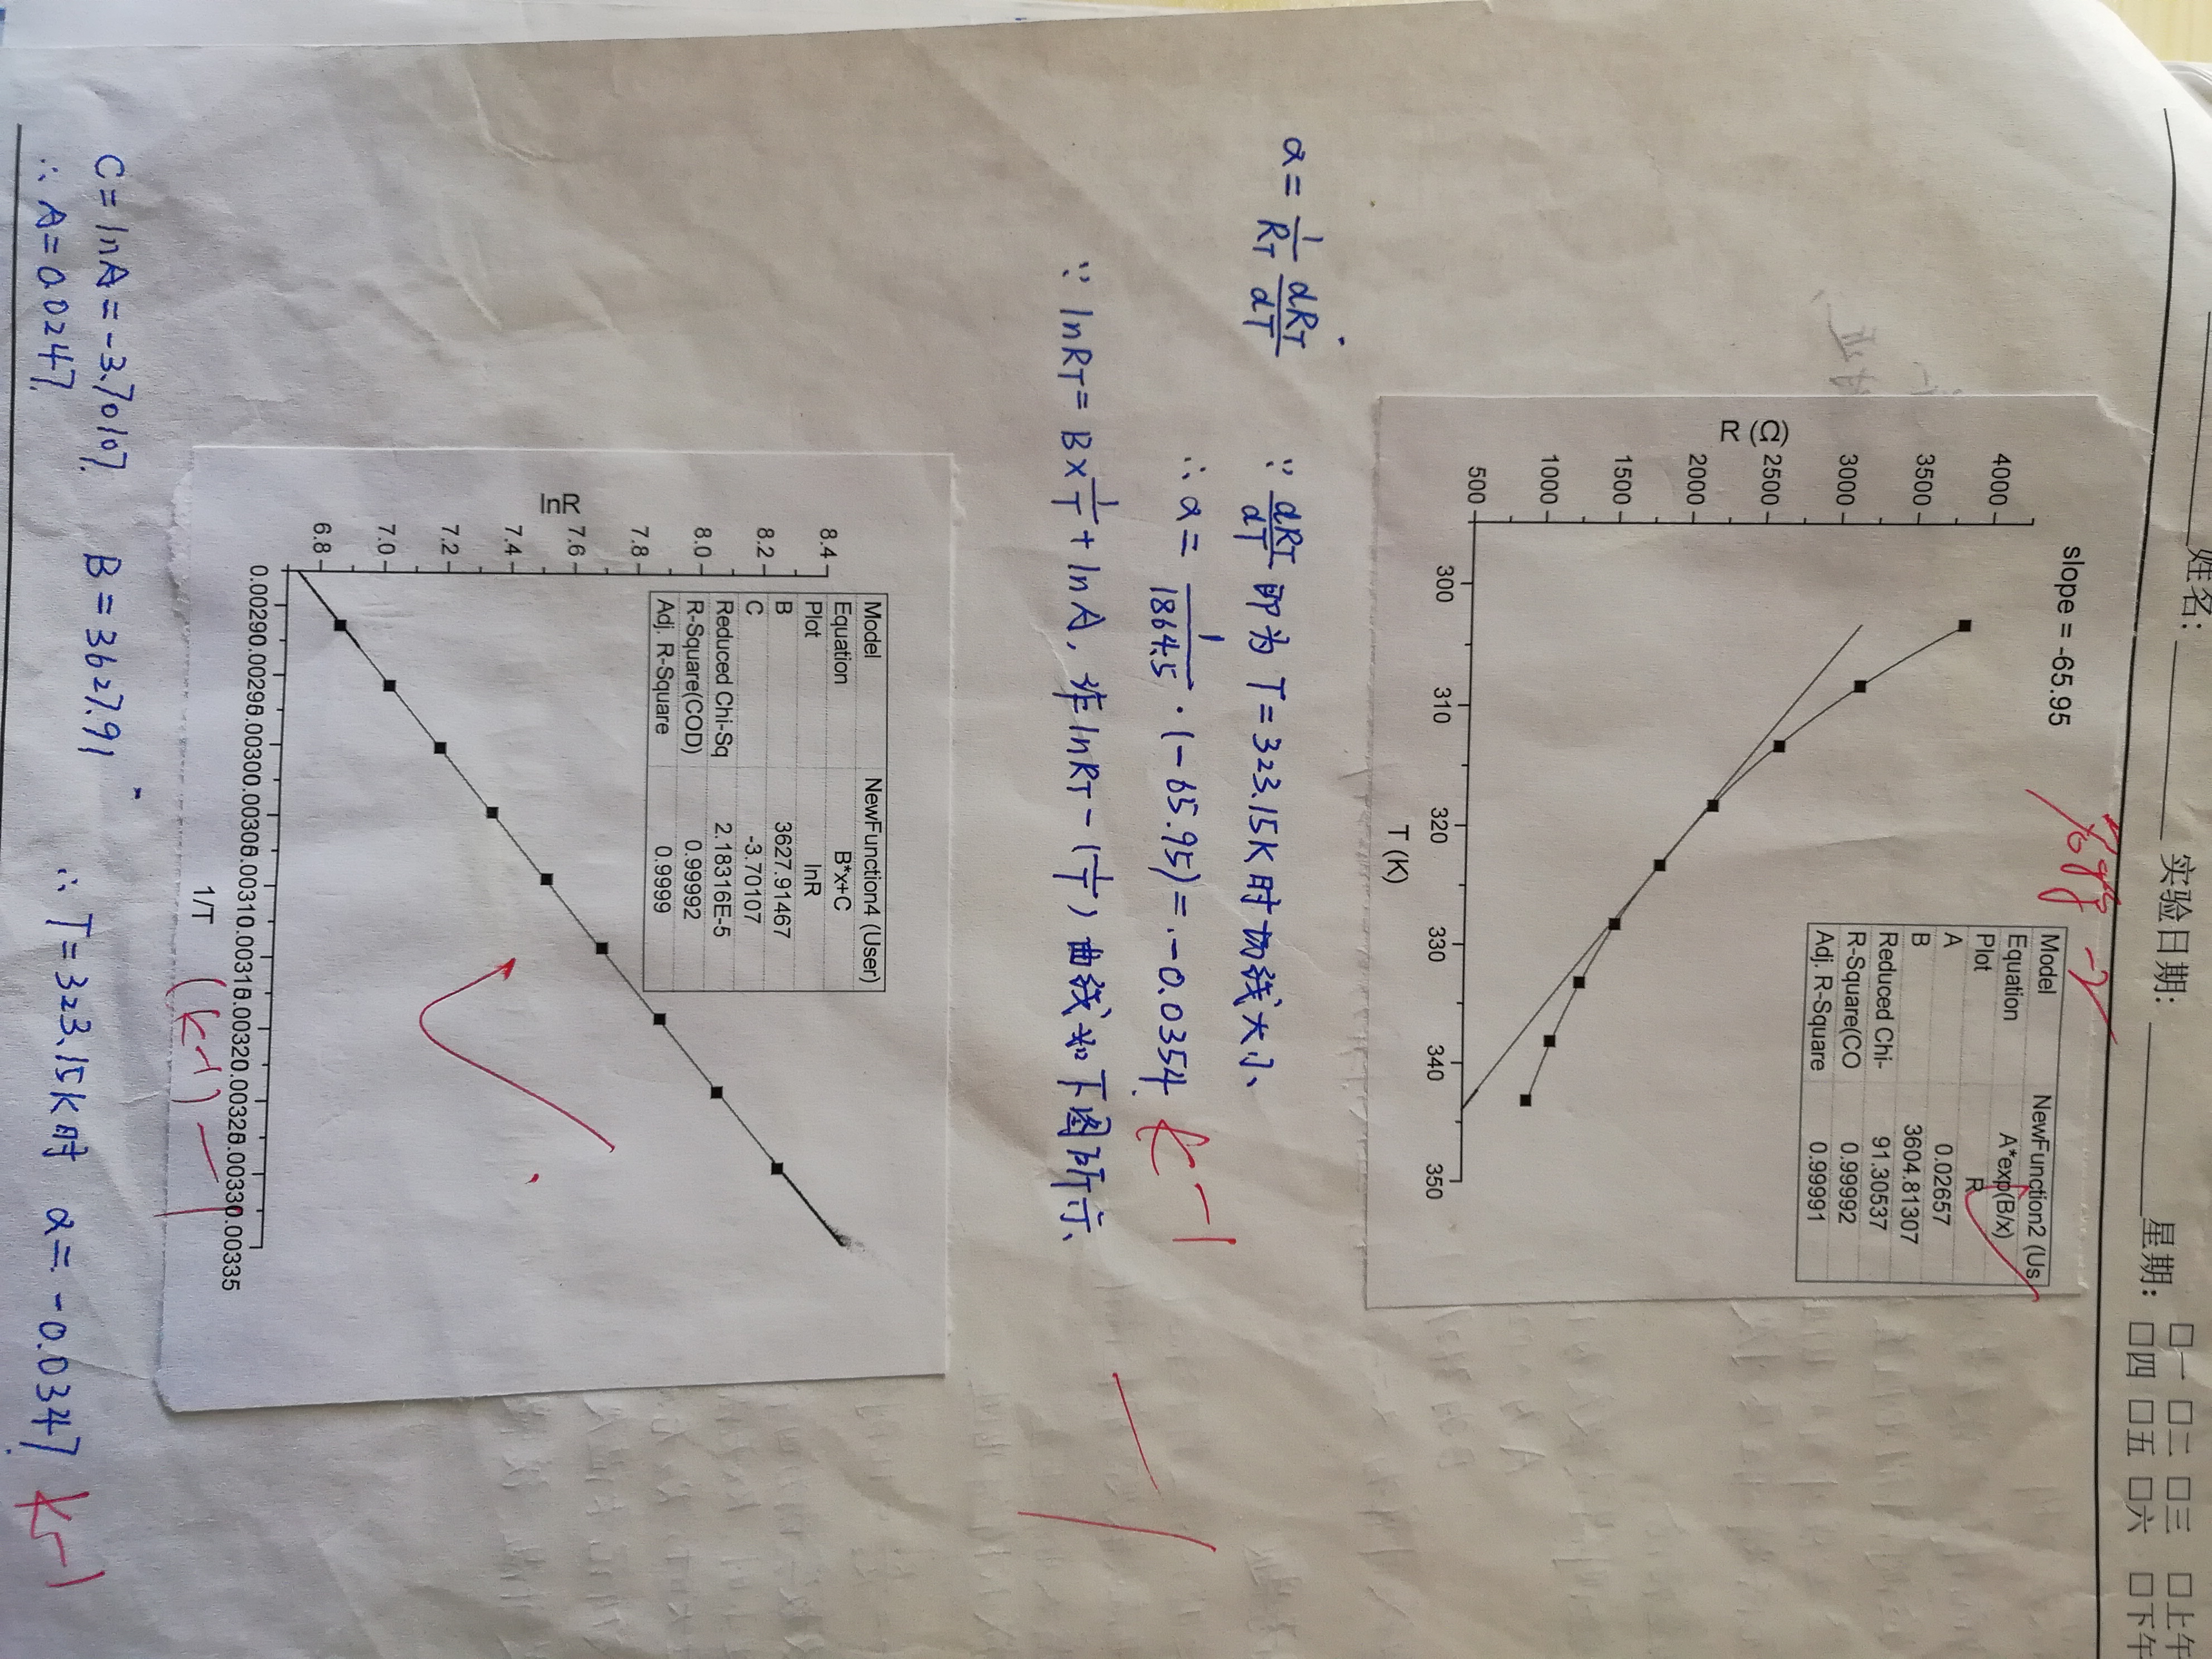 姓名: 实验日期: 星期: □一 □二 □三 □上午
□四 □五 □六 □下午
-2
slope = -65.95
Model NewFunction2 (Us
Equation A*exp(B/x)
Plot R
A 0.02657
B 3604.81307
Reduced Chi- 91.30537
R-Square(CO 0.99992
Adj. R-Square 0.99991
4000
3500
3000
2500
2000
1500
1000
500
R (Ω)
300 310 320 330 340 350
T (K)
α = 1/R_T dR_T/dT ∵ dR_T/dT 即为 T=323.15K 时切线大小
∴ α = 1/1864.5 · (-65.95) = -0.0354 K⁻¹
-1
∵ lnR_T = B×1/T + lnA, 作 lnR_T - (1/T) 曲线如下图所示
Model NewFunction4 (User)
Equation B*x+C
Plot lnR
B 3627.91467
C -3.70107
Reduced Chi-Sq 2.18316E-5
R-Square(COD) 0.99992
Adj. R-Square 0.9999
8.4
8.2
8.0
7.8
7.6
7.4
7.2
7.0
6.8
lnR
0.00290 0.00295 0.00300 0.00305 0.00310 0.00315 0.00320 0.00325 0.00330 0.00335
1/T (K⁻¹) -1
C = lnA = -3.70107 B = 3627.91
∴ A = 0.0247
∴ T=323.15K时 α = -0.0347 K⁻¹